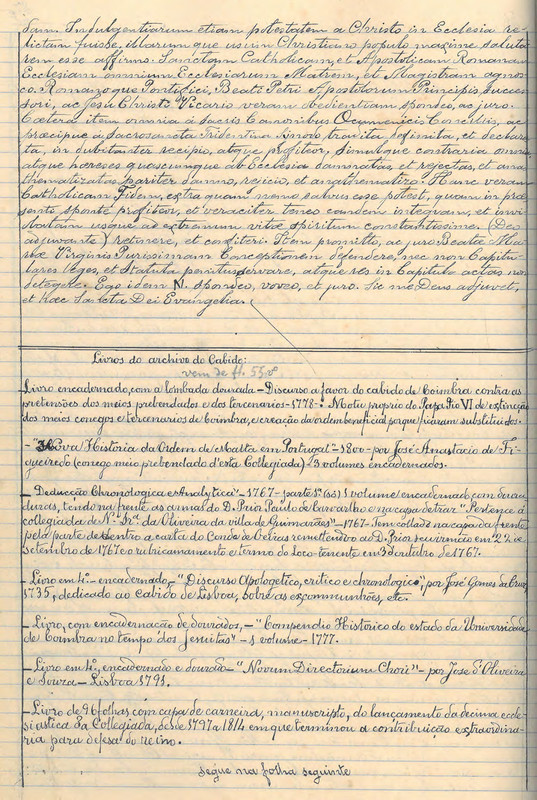 dam. Indulgentiarum etiam potestatem a Christo in Ecclesia re-
lictam fuisse, illarumque usum Christiano populo maxime saluta
rem esse affirmo. Sanctam Catholicam, et Apostolicam Romanam
Ecclesiam omnium Ecclesiarum Matrem, et Magistram agnos
co. Romanoque Pontifici, Beati Petri Apostolorum Principis succes
sori, ac Jesu Christi Vicario veram obedientiam spondeo, ac juro.
Cætera item omnia á Sacris Canonibus Ocumenicis Conciliis, ac
præcipue á Sacrosancta Tridentina Sinodo tradita, definita, et declara
ta, indubitanter recipio, atque profiteor, simulque contraria omnia
atque hæreses quascumque ab Ecclesia damnatas et rejectas, et ana
thematizatas pariter damno, rejicio, et anathematizo. Hanc veram
Catholicam Fidem, extra quam nemo salvus esse potest, quam in præ
senti sponte profiteor, et veraciter teneo eandem integram, et invi
olatam usque ad extremum vitæ spiritum constantissime (Deo
adjuvante) retinere, et confiteri. Item promitto, ac juro Beatæ Ma
riæ Virginis Purissimam Conceptionem defendere, nec non Capitu-
lares leges, et Statuta penitus servare, atque res in Capitulo actas non
detegere. Ego idem N. spondeo, voveo, et juro. Sic me Deus adjuvet,
et hæc Sancta Dei Evangelia.
Livros do archivo do Cabido:
vem de fl. 55vº
— Livro encadernado, com a lombada dourada — Discurso a favor do cabido de Coimbra contra as
pretensões dos meios prebendados e dos tercenarios — 1778 — Motu proprio do Papa Pio VI de extincção
dos meios conegos e tercenarios de Coimbra, e creação da ordem beneficial porque ficaram substituidos.
— "Nova Historia da Ordem de Malta em Portugal" — 1800 — por José Anastacio de Fi-
gueiredo (conego meio prebendado d'esta Collegiada) — 3 volumes encadernados.
— "Deducção Chronologica e Analytica" — 1767 — parte 1ª (só) 1 volume encadernado com doura
duras, tendo na frente as armas do D. Prior Paulo de Carvalho e na capa de traz "Pertence á
collegiada de N.ª Sr.ª da Oliveira da villa de Guimarães" — 1767 — Tem collado na capa da frente
pela parte de dentro a carta do Conde de Oeiras remettendo ao D. Prior seu irmão em 22 de
setembro de 1767 e o rubricamento e termo do loco-tenente em 3 d'outubro de 1767.
— Livro em 4º — encadernado, — "Discurso apologetico, critico e chronologico", por José Gomes da Cruz,
1735, dedicado ao cabido de Lisboa, sobre as excommunhões, etc.
— Livro, com encadernação de dourados, — "Compendio Historico do estado da Universidade
de Coimbra no tempo dos Jesuitas" — 1 volume — 1777.
— Livro em 4º, encadernado e dourado — "Novum Directorium Chori" — por José d'Oliveira
e Souza — Lisboa 1791.
— Livro de 96 folhas com capa de carneira, manuscripto, do lançamento da decima eccle-
siastica da Collegiada, desde 1797 a 1814 em que terminou a contribuição extraordina-
ria para defesa do reino.
segue na folha seguinte